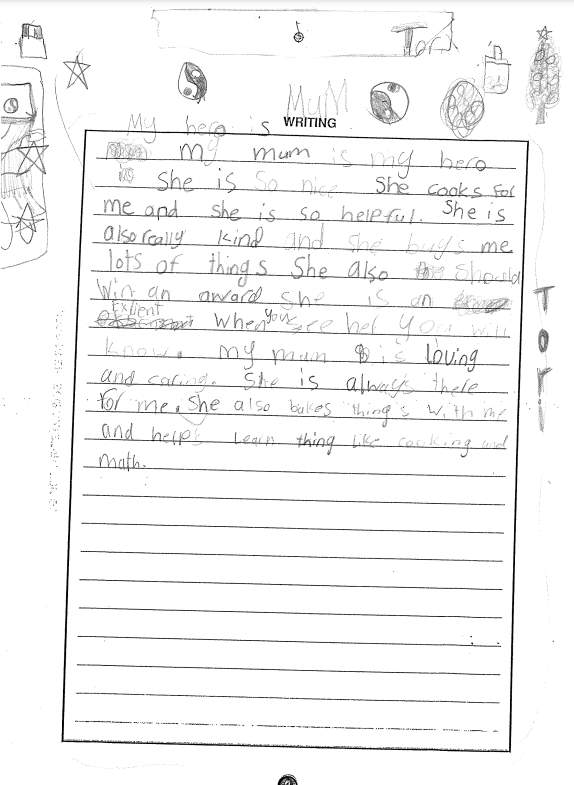 Tori
MUM
My hero is
WRITING
my mum is my hero
She is So nice She cooks For
me and she is so helpful. She is
also really kind and she buys me
lots of things She also Should
Win an award She is an
Exlient When you see her you will
know. my mum is loving
and caring. She is always there
for me. She also bakes thing's with me
and helps Learn thing like cooking and
math.
Tori